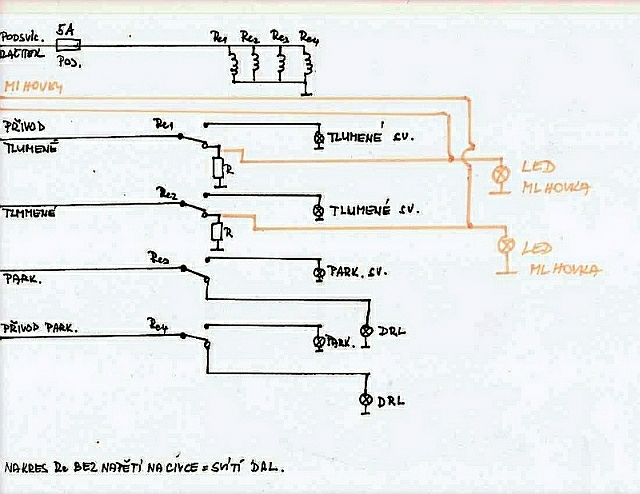 PODSVÍC. 5A Re1 Re2 Re3 Re4
RAČÍTEK POJ.
MLHOVKY
PŘÍVOD Re1 TLUMENÉ SV.
TLUMENÉ R LED
MLHOVKA
Re2
TLMMENÉ TLUMENÉ SV.
R LED
MLHOVKA
Re3 PARK. SV.
PARK.
PŘÍVOD PARK. Re4 PARK. DRL
DRL
NAKRES Re BEZ NAPĚTÍ NA CÍVCE = SVÍTÍ DRL.